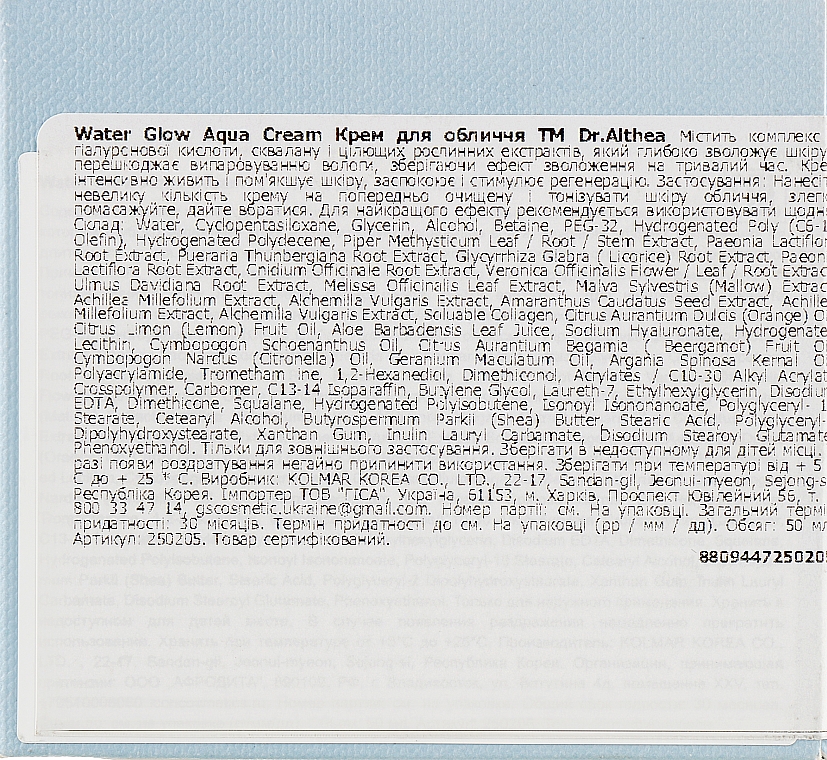 Water Glow Aqua Cream Крем для обличчя ТМ Dr.Althea Містить комплекс
гіалуронової кислоти, сквалану і цілющих рослинних екстрактів, який глибоко зволожує шкіру
перешкоджає випаровуванню вологи, зберігаючи ефект зволоження на тривалий час. Кре
інтенсивно живить і пом'якшує шкіру, заспокоює і стимулює регенерацію. Застосування: Нанесіт
невелику кількість крему на попередньо очищену і тонізувати шкіру обличчя, злег
помасажуйте, дайте вбратися. Для найкращого ефекту рекомендується використовувати щодн
Склад: Water, Cyclopentasiloxane, Glycerin, Alcohol, Betaine, PEG-32, Hydrogenated Poly (C6-1
Olefin), Hydrogenated Polydecene, Piper Methysticum Leaf / Root / Stem Extract, Paeonia Lactiflor
Root Extract, Pueraria Thunbergiana Root Extract, Glycyrrhiza Glabra ( Licorice) Root Extract, Paeon
Lactiflora Root Extract, Cnidium Officinale Root Extract, Veronica Officinalis Flower / Leaf / Root Extrac
Ulmus Davidiana Root Extract, Melissa Officinalis Leaf Extract, Malva Sylvestris (Mallow) Extrac
Achillea Millefolium Extract, Alchemilla Vulgaris Extract, Amaranthus Caudatus Seed Extract, Achille
Millefolium Extract, Alchemilla Vulgaris Extract, Soluable Collagen, Citrus Aurantium Dulcis (Orange) O
Citrus Limon (Lemon) Fruit Oil, Aloe Barbadensis Leaf Juice, Sodium Hyaluronate, Hydrogenate
Lecithin, Cymbopogon Schoenanthus Oil, Citrus Aurantium Begamia ( Beergamot) Fruit O
Cymbopogon Nardus (Citronella) Oil, Geranium Maculatum Oil, Argania Spinosa Kernal O
Polyacrylamide, Trometham ine, 1,2-Hexanediol, Dimethiconol, Acrylates / C10-30 Alkyl Acrylat
Crosspolymer, Carbomer, C13-14 Isoparaffin, Butylene Glycol, Laureth-7, Ethylhexylglycerin, Disodiu
EDTA, Dimethicone, Squalane, Hydrogenated Polyisobutene, Isonoyl Isononanoate, Polyglyceryl- 1
Stearate, Cetearyl Alcohol, Butyrospermum Parkii (Shea) Butter, Stearic Acid, Polyglyceryl-
Dipolyhydroxystearate, Xanthan Gum, Inulin Lauryl Carbamate, Disodium Stearoyl Glutamate
Phenoxyethanol. Тільки для зовнішнього застосування. Зберігати в недоступному для дітей місці.
разі появи роздратування негайно припинити використання. Зберігати при температурі від + 5
C до + 25 ° C. Виробник: KOLMAR KOREA CO., LTD., 22-17, Sandan-gil, Jeonui-myeon, Sejong-s
Республіка Корея. Імпортер ТОВ "ГІСА", Україна, 61153, м. Харків, Проспект Ювілейний 56, т.
800 33 47 14, gscosmetic.ukraine@gmail.com. Номер партії: см. На упаковці. Загальний термі
придатності: 30 місяців. Термін придатності до см. На упаковці (рр / мм / дд). Обсяг: 50 мл
Артикул: 250205. Товар сертифікований.
880944725020